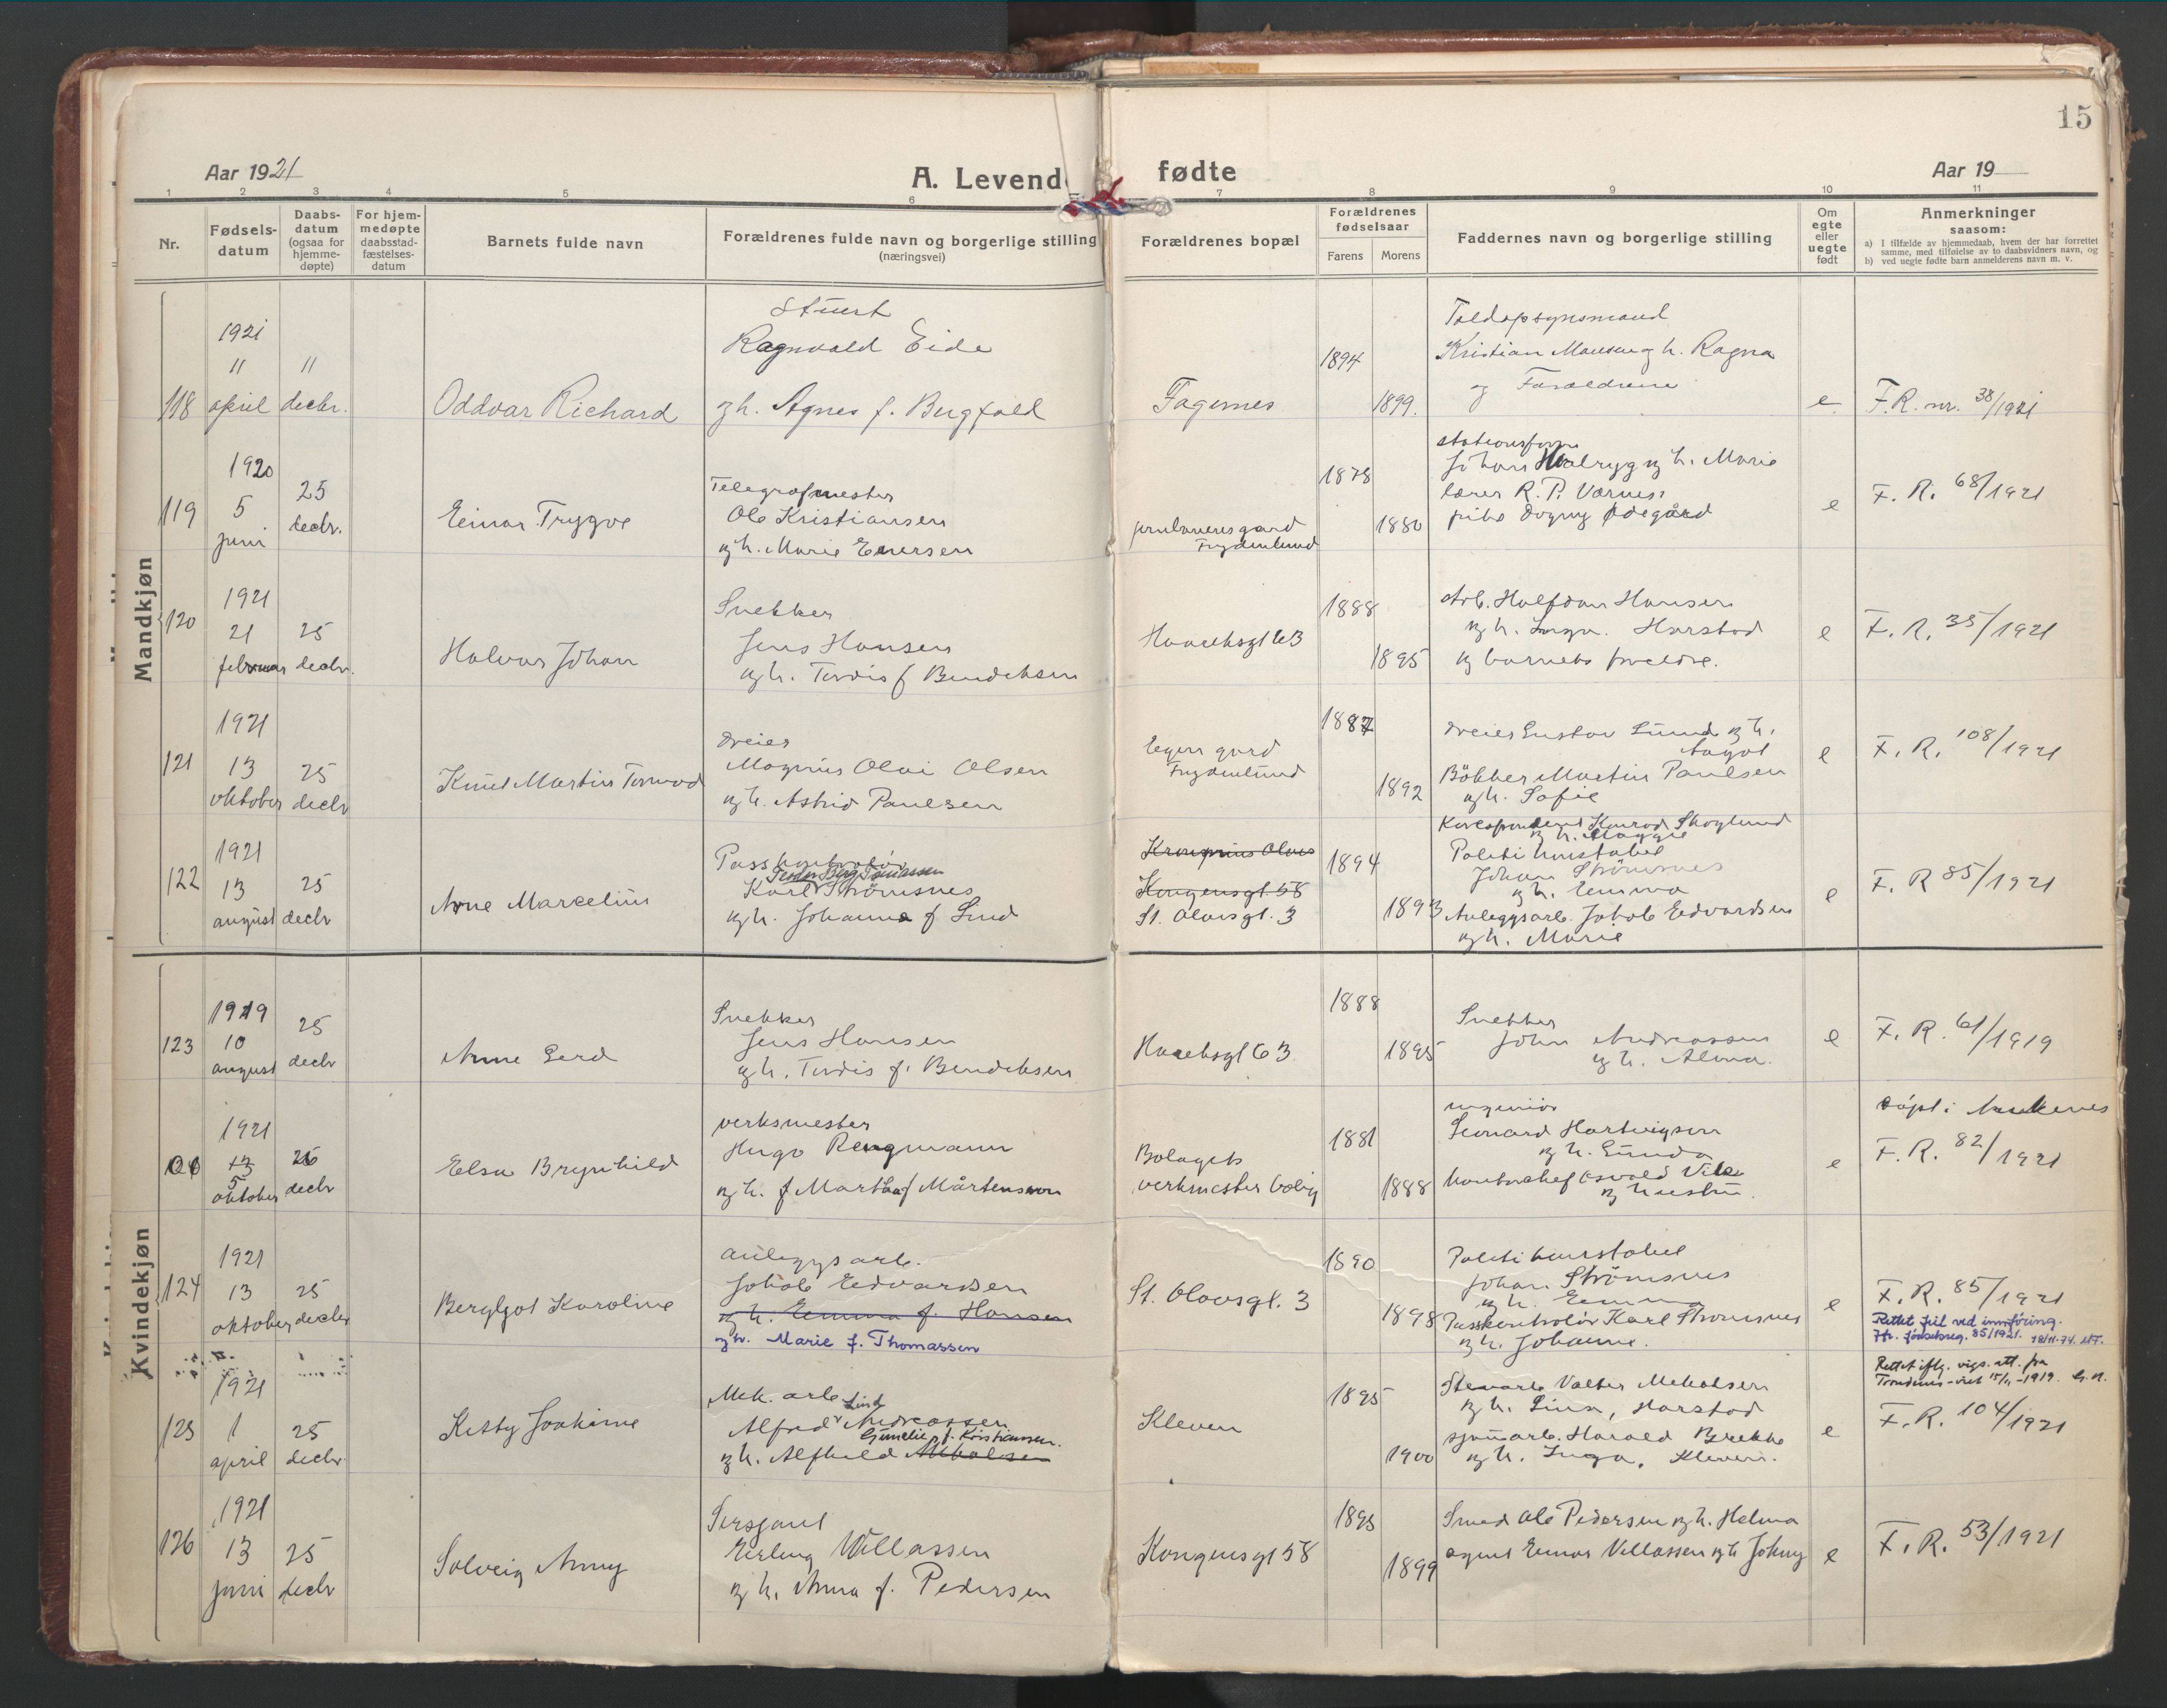 15
Aar 1921
A. Levende
fødte
Aar 19
1 2 3 4 5 6 7 8 9 10 11
Nr.
Fødsels-
datum
Daabs-
datum
(ogsaa for
hjemme-
døpte)
For hjem-
medøpte
daabsstad-
fæstelses-
datum
Barnets fulde navn
Forældrenes fulde navn og borgerlige stilling
(næringsvei)
Forældrenes bopæl
Forældrenes
fødselsaar
Farens
Morens
Faddernes navn og borgerlige stilling
Om
egte
eller
uegte
født
Anmerkninger
saasom:
a) I tilfælde av hjemmedaab, hvem der har forrettet
samme, med tilføielse av to daabsvidners navn, og
b) ved uegte fødte barn anmelderens navn m. v.
Mandkjøn
118
1921
11
april
11
decbr.
Oddvar Richard
Stuert
Ragnvald Eide
og h. Agnes f. Bergfald
Fagernes
1894
1899.
Toldopsynsmand
Kristian Mausen og h. Ragna
og Forældrene
e
F.R. nr. 38/1921
119
1920
5
juni
25
decbr.
Einar Trygve
Telegrafmester
Ole Kristiansen
og h. Marie Enersen
Frydenlund
1878
1880
Johan Hvalryg og h. Marie
lærer R. P. Varnes.
Dagny Ødegård
e
F. R. 68/1921
120
1921
21
februar
25
decbr.
Halvar Johan
Snekker
Jens Hansen
og h. Tordis f Bendiksen
Haareksgt 63
1888
1895
Arb. Halfdan Hansen
og h. Inga. Harstad
og barnets foreldre.
e
F. R. 35/1921
121
1921
13
oktober
25
decbr
Knut Martin Tormod
Dreier
Magnus Olai Olsen
og h. Astrid Paulsen
gård
Frydenlund
1887
1892
Dreier Gustav Lund og h.
Aagot
Bøkker Martin Paulsen
og h. Sofie
e
F. R. 108/1921
122
1921
13
august
25
decbr
Arne Marcelius
Passkontrolør
Karl Strømsnes
og h. Johanna f. Lind
Kronprins Olavs
Kongensgt. 58
St. Olavsgt. 3
1894
1893
Korespondent Konrad Skoglund
og h. Maggie
Politikonstabel
Johan Strømsnes
og h. Emma
Anleggsarb. Jakob Edvardsen
og h. Marie
e
F. R 85/1921
Kvindekjøn
123
1919
10
august
25
decbr
Anne Gerd
Snekker
Jens Hansen
og h. Tordis f. Bendiksen
Haareksgt 63
1888
1895
Snekker
John Andreassen
og h. Alma.
e
F. R. 61/1919
1921
13
5
oktober
26
decbr
Elsa Brynhild
verksmester
Hugo Rengmann
og h. f Martha f Mårtensson
Bolagets
verkmester bolig
1881
1888
ingeniør
Leonard Hartvigsen
og h. Gunda
kontorchef Osvold Vik
og hustru.
e
døpt i Ankenes
F. R. 82/1921
124
1921
13
oktober
25
decbr
Bergljot Karoline
anleggsarb.
Jakob Edvardsen
og h. Emma f. Hansen
og h. Marie f. Thomassen
St. Olavsgt. 3
1890
1898
Politikonstabel
Johan Strømsnes
og h. Emma
Passkontrolør Karl Strømsnes
og h. Johanne.
e
F. R. 85/1921
Rettet feil ved innføring.
Jfr. fødselsreg. 85/1921. 18/11-74.
125
1921
1
april
25
decbr
Ketty Joakime
Mek. arb.
Lind
Alfred Andreassen
Gunelie f. Kristiansen.
og h. Alfhild
Kleven
1895
1900
Valter Mekalsen
og h. Lina, Harstad
Harald Brekke
og h. Inga, Kleven.
e
Rettet iflg. vigs. att. fra
Trondenes 15/11-1919.
F. R. 104/1921
126
1921
13
juni
25
decbr
Solveig Anny
Sersjant
Erling Villassen
og h. Anna f. Pedersen
Kongensgt 58
1895
1899
Smed Ole Pedersen og h. Helma
agent Einar Villassen og h Johny
e
F. R. 53/1921